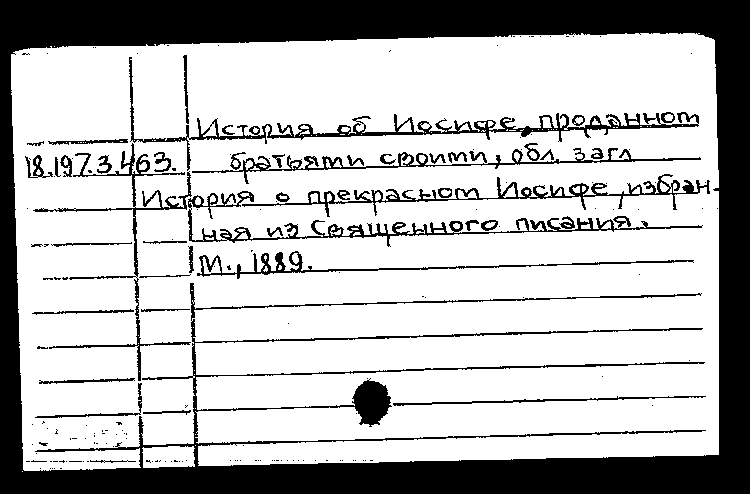 История об Иосифе, проданном
18.197.3.463. братьями своими, обл. загл
История о прекрасном Иосифе, избран-
ная из Священного писания.
М., 1889.